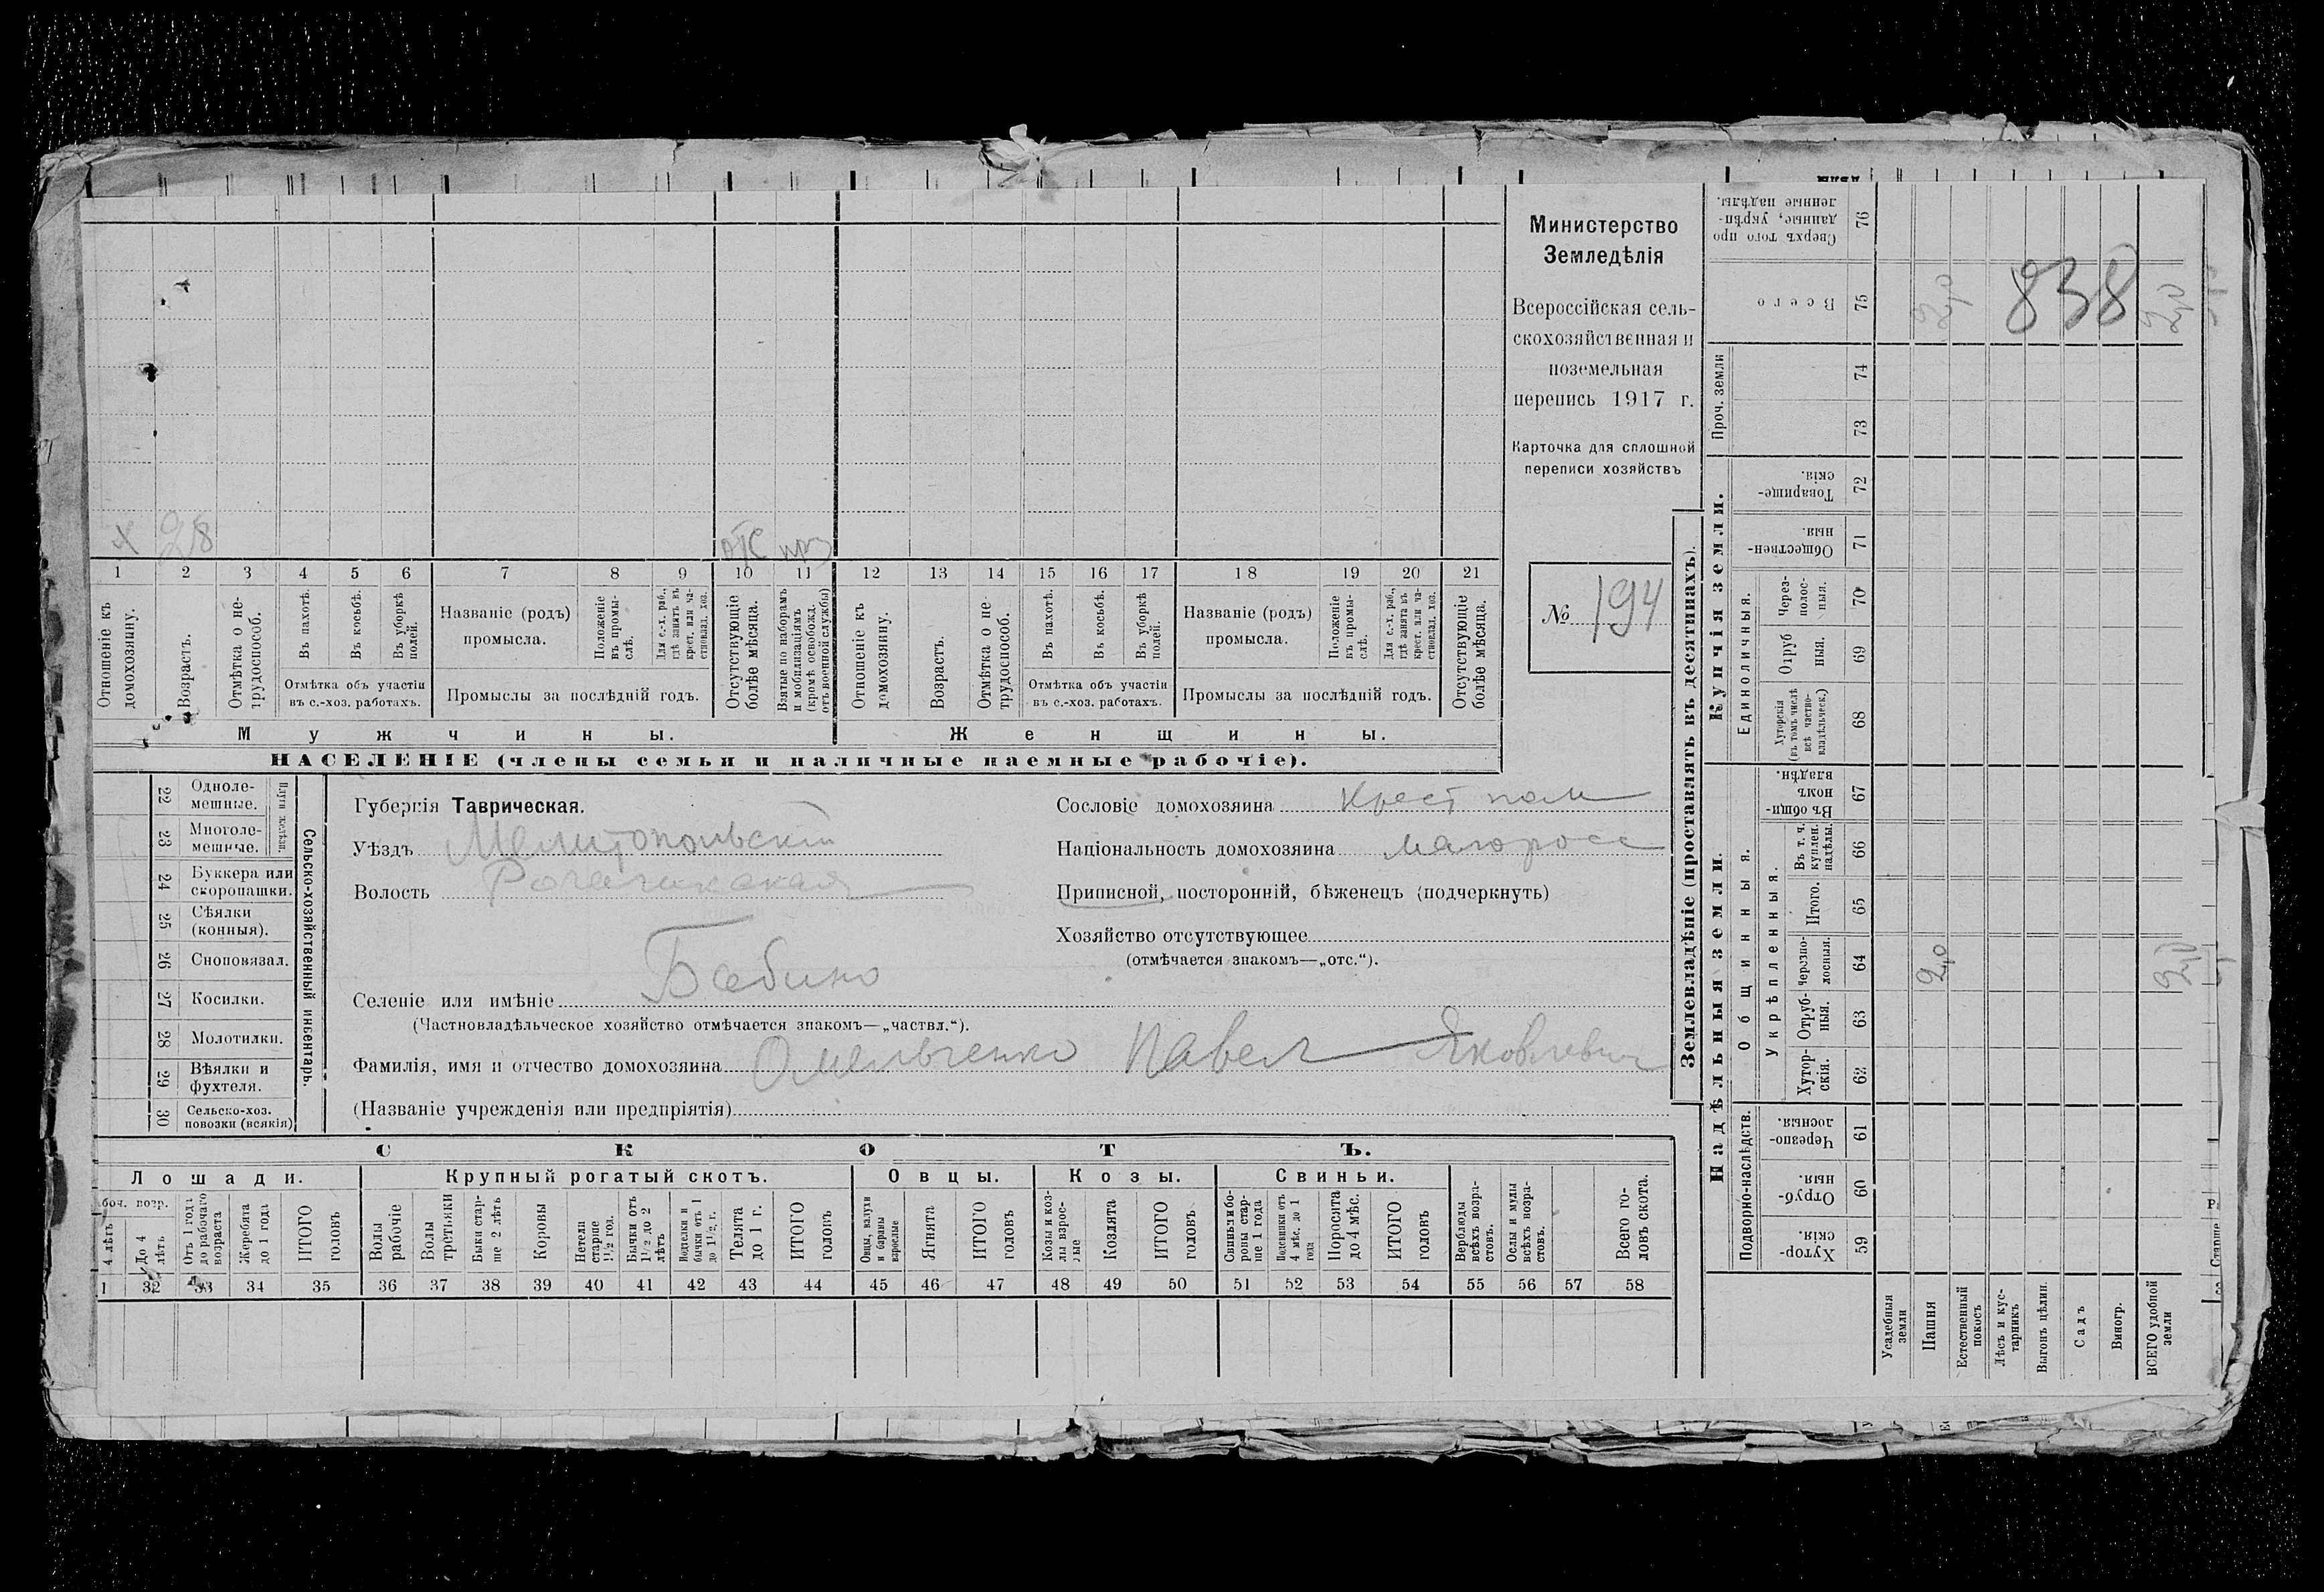 Министерство
Земледѣлія
Всероссійская сель-
скохозяйственная и
поземельная
перепись 1917 г.
Карточка для сплошной
переписи хозяйствъ
№ 194
х 28 отс
1 2 3 4 5 6 7 8 9 10 11 12 13 14 15 16 17 18 19 20 21
Отношеніе къ домохозяину.
Возрастъ.
Отмѣтка о не-трудоспособ.
Въ пахотѣ.
Въ косьбѣ.
Въ уборкѣ полей.
Отмѣтка объ участіи
въ с.-хоз. работахъ.
Названіе (родъ)
промысла.
Положеніе въ промы-слѣ.
Для с.-х. раб., гдѣ занятъ въ крест. или ча-стновлад. хоз.
Промыслы за послѣдній годъ.
Отсутствующіе болѣе мѣсяца.
Взятые по наборамъ и мобилизаціямъ (кромѣ освобожд. отъ военной службы)
Отношеніе къ домохозяину.
Возрастъ.
Отмѣтка о не-трудоспособ.
Въ пахотѣ.
Въ косьбѣ.
Въ уборкѣ полей.
Отмѣтка объ участіи
въ с.-хоз. работахъ.
Названіе (родъ)
промысла.
Положеніе въ промы-слѣ.
Для с.-х. раб., гдѣ занята въ крест. или ча-стновлад. хоз.
Промыслы за послѣдній годъ.
Отсутствующіе болѣе мѣсяца.
Мужчины.
Женщины.
НАСЕЛЕНІЕ (члены семьи и наличные наемные рабочіе).
22 Одноле-
мешные.
23 Многоле-
мешные.
Плуги желѣзн.
24 Буккера или
скоропашки.
25 Сѣялки
(конныя).
26 Сноповязал.
27 Косилки.
28 Молотилки.
29 Вѣялки и
фухтеля.
30 Сельско-хоз.
повозки (всякія)
Сельско-хозяйственный инвентарь.
Губернія Таврическая.
Уѣздъ Мелитопольскій
Волость Рогачикская
Селеніе или имѣніе Бабино
(Частновладѣльческое хозяйство отмѣчается знакомъ—„частвл.“).
Фамилія, имя и отчество домохозяина Омельченко Павел Яковлевич
(Названіе учрежденія или предпріятія)
Сословіе домохозяина Крест
Національность домохозяина малоросс
Приписной, посторонній, бѣженецъ (подчеркнуть)
Хозяйство отсутствующее
(отмѣчается знакомъ—„отс.“).
СКОТЪ.
Лошади. Крупный рогатый скотъ. Овцы. Козы. Свиньи.
боч. возр.
4 лѣтъ
До 4 лѣтъ
Отъ 1 года до рабочаго возраста
Жеребята до 1 года
ИТОГО головъ
Волы рабочіе
Волы третьяки
Быки стар-ше 2 лѣтъ
Коровы
Нетели старше 1½ год.
Бычки отъ 1½ до 2 лѣтъ
Подтелки и бычки отъ 1 до 1½ г.
Телята до 1 г.
ИТОГО головъ
Овцы, валухи и бараны взрослые
Ягнята
ИТОГО головъ
Козы и коз-лы взрос-лые
Козлята
ИТОГО головъ.
Свиньи и бо-ровы стар-ше 1 года
Подсвинки отъ 4 мѣс. до 1 года
Поросята до 4 мѣс.
ИТОГО головъ
Верблюды всѣхъ возра-стовъ.
Ослы и мулы всѣхъ возра-стовъ.
Всего го-ловъ скота.
1 32 33 34 35 36 37 38 39 40 41 42 43 44 45 46 47 48 49 50 51 52 53 54 55 56 57 58
Землевладѣніе (проставлять въ десятинахъ).
Купчія земли.
Надѣльныя земли.
Сверхъ того про-даные, укрѣп-ленные надѣлы. 76
Всего 75 2,0 838 2,0
Проч. земли
74
73
Товарище-скія. 72
Обществен-ныя. 71
Единоличныя.
Через-полос-ныя. 70
Отруб ныя. 69
Хуторскія (въ томъ числѣ всѣ частно-владѣльческ.) 68
Въ общи-номъ владѣн. 67
Общинныя.
Укрѣпленныя.
Въ т. ч. куплен. надѣлы. 66
Итого. 65
Черезпо-лосныя. 64 2,0 2,0
Отруб-ныя. 63
Хутор-скія. 62
Подворно-наслѣдств.
Черезпо-лосныя. 61
Отруб-ныя. 60
Хутор-скія. 59
Усадебныя земли
Пашня
Естественный покосъ
Лѣсъ и кус-тарникъ
Выгонъ цѣлин.
Садъ
Виногр.
ВСЕГО удобной земли
Старше